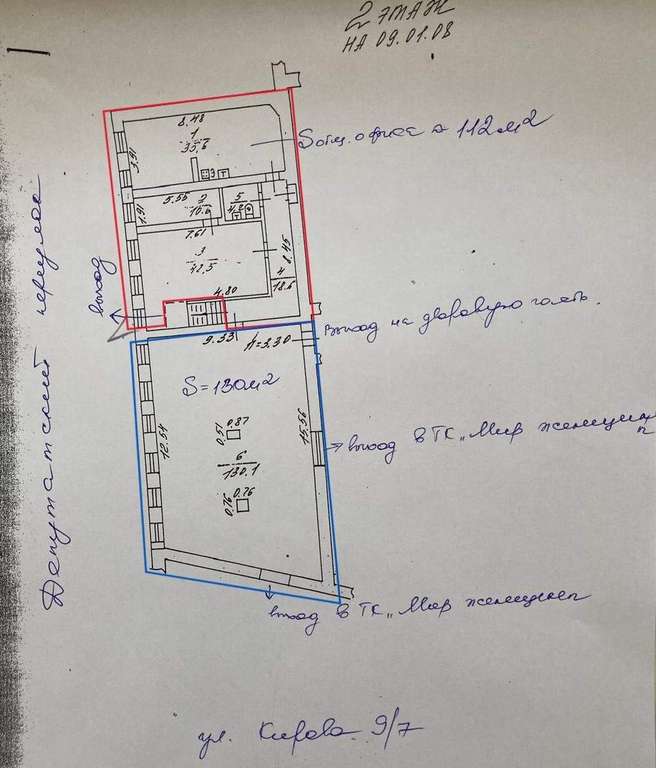 2 ЭТАЖ
НА 09.01.08
8.48
1
35.6
5.91
Sотд. офиса = 112 м2
5.55
2
10.6
1.91
5
4.2
7.61
3
42.5
8.45
4
18.6
4.80
выход
Депутатский переулок
Выход на дворовую часть.
9.33
h=3.30
S=130м2
0.87
0.51
12.54
15.56
6
130.1
0.76
0.76
выход в ТК „Мир женщины"
вход в ТК „Мир женщины"
ул. Кирова 9/7